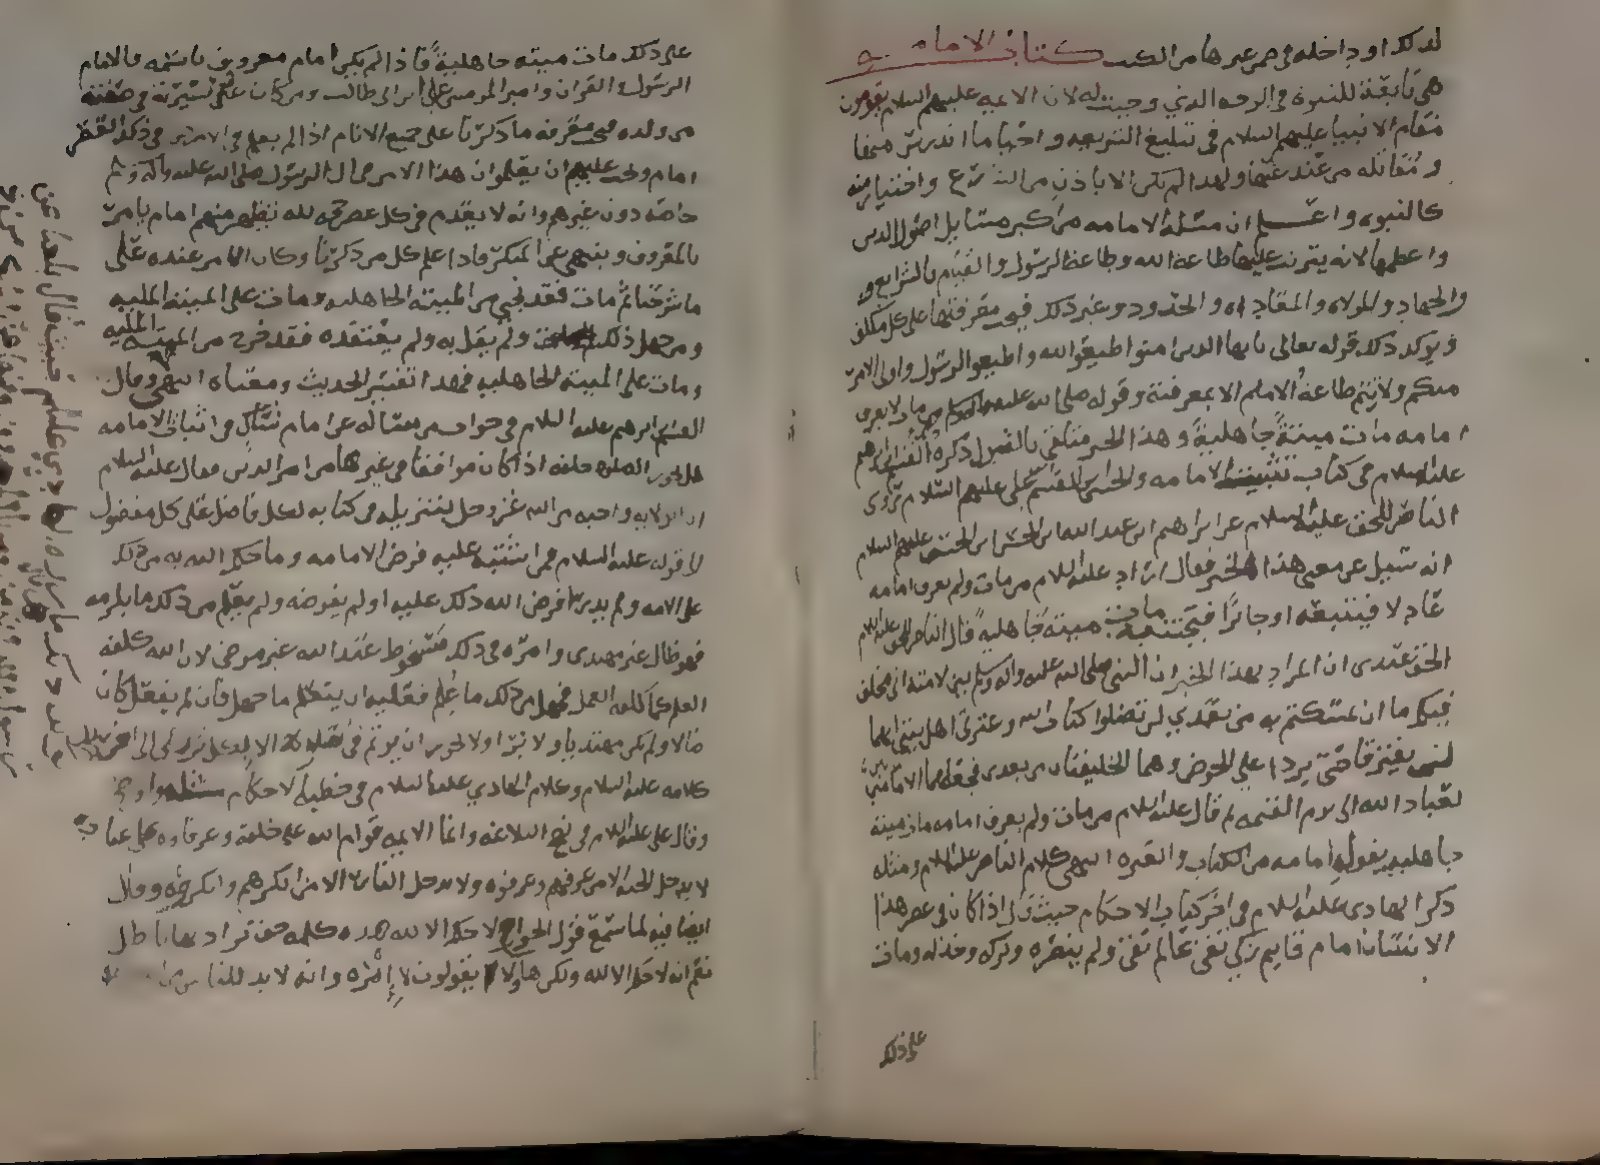 لذلك او داخله في غيرها من الكتب كتاب الامامه
هي تابعة للنبوة في الوجه الذي وجبت له لان الايمه عليهم السلام يقومون
مقام الانبيا عليهم السلام في تبليغ الشريعه واحيا ما اندرس منها
ومقاتله من عند عنها ولهذا لم تكن الا باذن من الشرع واختيار منه
كالنبوه واعلم ان مسئلة الامامه من اكبر مسايل اصول الدين
واعظمها لانه يترتب عليها طاعة الله وطاعة الرسول والقيام بالشرايع
والجهاد والموالاه والمعاداه والحدود وغير ذلك فيجب معرفتها على كل مكلف
ويوكد ذلك قوله تعالى يايها الذين امنوا اطيعوا الله واطيعوا الرسول واولي الامر
منكم ولا تتم طاعة الامام الا بمعرفته وقوله صلى الله عليه واله وسلم من مات لا يعرف
امامه مات ميتة جاهلية وهذا الخبر متلقى بالقبول ذكره القسم بن ابرهيم
عليه السلام في كتاب تثبيت الامامه والحسين بن القسم بن علي عليهم السلام وروى
الناصر للحق عليه السلام عن ابراهيم بن عبد الله بن الحسن بن الحسن عليهم السلام
انه سئل عن معنى هذا الخبر فقال اراد عليه السلام من مات ولم يعرف امامه
عادلا فيتبعه او جائرا فيجتنبه مات ميتة جاهلية قال الناصر للحق عليه السلام
الحق عندي ان المراد بهذا الخبر ان النبي صلى الله عليه واله وسلم بين لامته اني مخلف
فيكم ما ان تمسكتم به من بعدي لن تضلوا كتاب الله وعترتي اهل بيتي انهما
لن يفترقا حتى يردا علي الحوض وهما الخليفتان من بعدي فجعلهما الامامين
لعباد الله الى يوم القيمه ثم قال عليه السلام من مات ولم يعرف امامه مات ميتة
جاهليه يقول امامه من الكتاب والعتره انتهى كلام الناصر عليه السلام ومثله
ذكر الهادي عليه السلام في اخر كتاب الاحكام حيث قال اذا كان في عصر هذا
الانسان امام قايم زكي تقي عالم نقي ولم ينصره وتركه وخذله ومات
على ذلك
على ذلك مات ميتة جاهلية فاذا لم يكن امام معروف باسمه فالامام
الرسول والقران وامير المومنين علي بن ابي طالب ومن كان على سيرته في صفته
من ولده فيجب معرفة ما ذكرنا على جميع الانام اذا لم يعلم في الارض في ذلك العصر
امام ويجب عليهم ان يعلموا ان هذا الامر في ال الرسول صلى الله عليه واله وسلم
خاصة دون غيرهم وانه لا يعدم في كل عصر حجة لله يظهر منهم امام يامر
بالمعروف وينهى عن المنكر فاذا علم كل من ذكرنا وكان الامر عنده على
ما شرحنا ثم مات فقد نجي من الميتة الجاهليه ومات على الميتة المليه
ومن جهل ذلك ولم يقل به ولم يعتقده فقد خرج من الميته المليه
ومات على الميتة الجاهليه فهذا تفسير الحديث ومعناه انتهى وقال
القسم بن ابرهيم عليه السلام في جواب من سئاله عن امام شاك في اثبات الامامه
هل تجوز الصلوه خلفه اذا كان موافقا في غيرها من امر الدين فقال عليه السلام
ان الولايه واجبه من الله عز وجل بتنزيله في كتابه لكل فاضل على كل مفضول
لا قوله عليه السلام فمن اشتبه عليه فرض الامامه وما حكم الله به من ذلك
على الامه ولم يدر ما فرض الله ذلك عليه او لم يفرضه ولم يعلم من ذلك ما يلزمه
فهو ضال غير مهتدي وامره في ذلك مسخوط عند الله غير مرضي لان الله كلفه
العلم كما كلفه العمل فجهل من ذلك ما علم فعليه ان يتعلم ما جهل فان لم يفعل كان
ضالا ولم يكن مهتديا ولا برا ولا يجوز ان يؤتم في صلاة الا بكل بر زكي الى اخر
كلامه عليه السلام وكلام الهادي عليه السلام في خطبة الاحكام
وقال علي عليه السلام في نهج البلاغه وانما الايمه قوام الله على خلقه وعرفاوه على عباده
لا يدخل الجنه الا من عرفهم وعرفوه ولا يدخل النار الا من انكرهم وانكروه وقال
ايضا فيه لما سمع قول الخوارج لا حكم الا لله هذه كلمه حق يراد بها باطل
نعم انه لا حكم الا لله ولكن هاولا يقولون لا إمره وانه لا بد للناس من